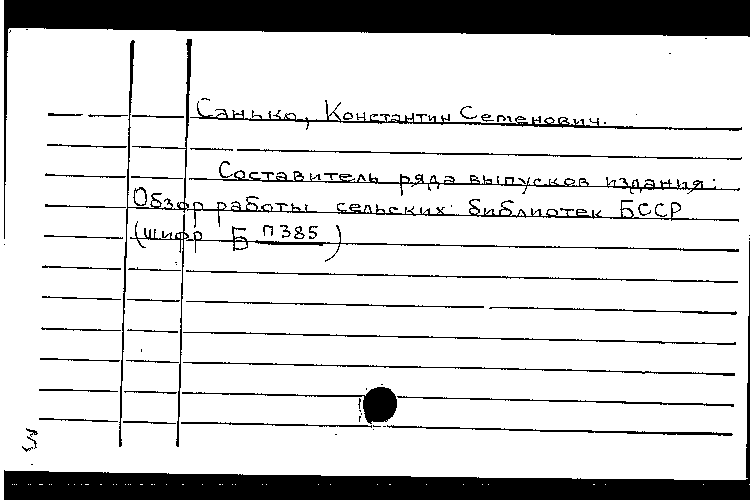 Санько, Константин Семенович.
Составитель ряда выпусков издания:
Обзор работы сельских библиотек БССР
(шифр Б П385)